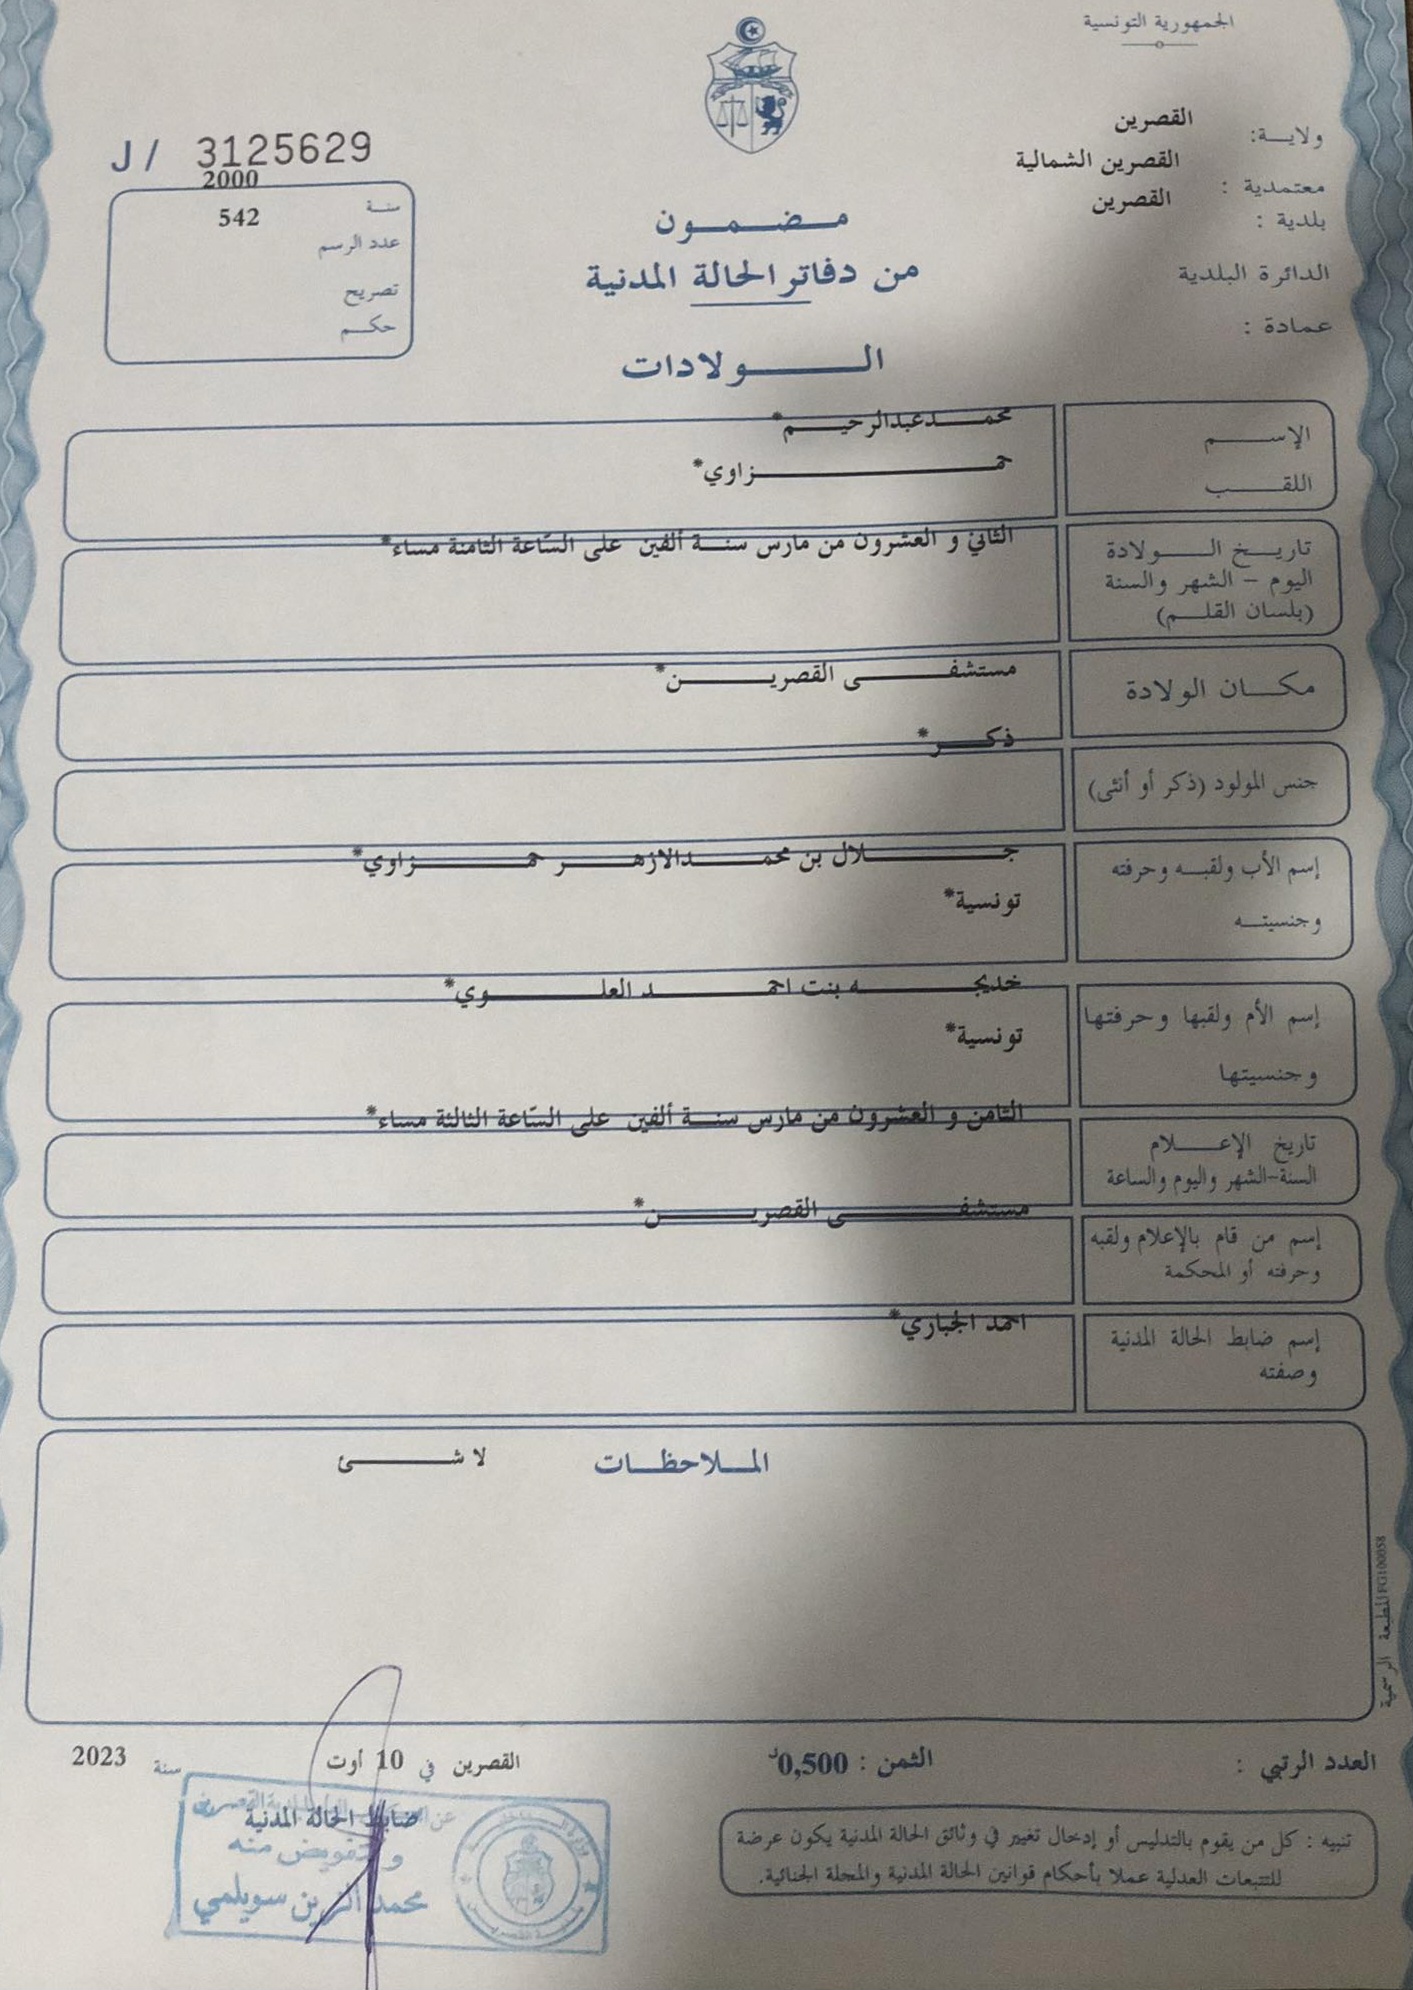 الجمهورية التونسية
ولاية: القصرين
معتمدية : القصرين الشمالية
بلدية : القصرين
الدائرة البلدية
عمادة :
J/ 3125629
سنة 2000
عدد الرسم 542
تصريح
حكم
مضمون
من دفاتر الحالة المدنية
الولادات
الإسم محمدعبدالرحيم*
اللقب حمزاوي*
تاريخ الولادة
اليوم - الشهر والسنة
(بلسان القلم)
الثاني و العشرون من مارس سنة ألفين على السّاعة الثامنة مساء*
مكان الولادة
مستشفى القصرين*
جنس المولود (ذكر أو أنثى)
ذكر*
إسم الأب ولقبه وحرفته
وجنسيته
جلال بن محمدالازهر حمزاوي*
تونسية*
إسم الأم ولقبها وحرفتها
وجنسيتها
خديجه بنت احمد العلوي*
تونسية*
تاريخ الإعلام
السنة-الشهر واليوم والساعة
الثامن و العشرون من مارس سنة ألفين على السّاعة الثالثة مساء*
إسم من قام بالإعلام ولقبه
وحرفته أو المحكمة
مستشفى القصرين*
إسم ضابط الحالة المدنية
وصفته
احمد الجباري*
الملاحظات لا شئ
المطبعة الرسمية FG100058
العدد الرتبي :
الثمن : 0,500د
القصرين في 10 أوت سنة 2023
ضابط الحالة المدنية
وبتفويض منه
محمد الزين سويلمي
تنبيه : كل من يقوم بالتدليس أو إدخال تغيير في وثائق الحالة المدنية يكون عرضة
للتتبعات العدلية عملا بأحكام قوانين الحالة المدنية والمجلة الجنائية.